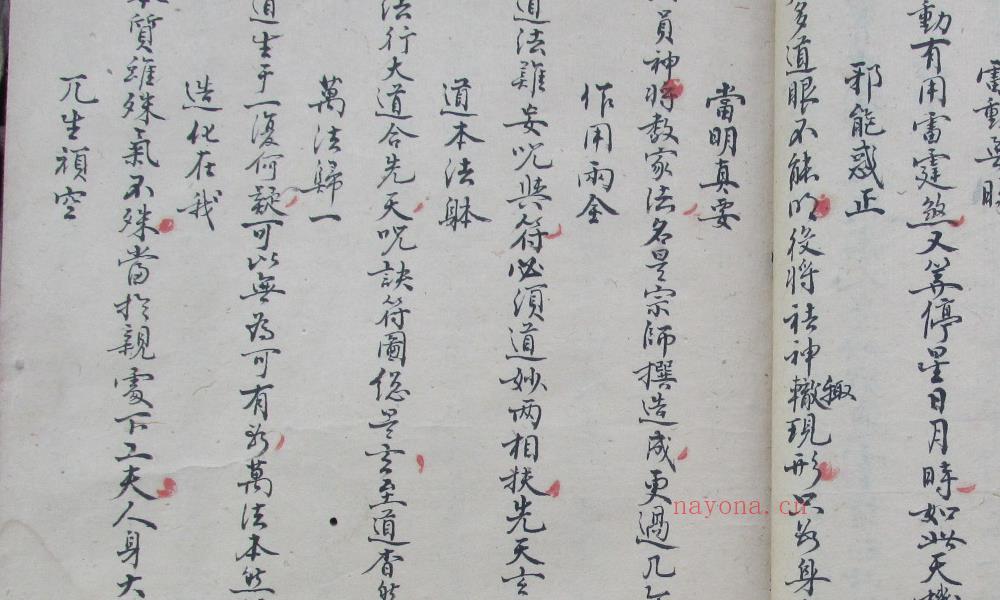 動有用雷霆煞又筭停星日月時如此天機
邪能惑正
多道眼不能明役將社神轍現形只為身
趣
當明真要
員神將教家法名是宗師撰造成更過几
作用兩全
道法難妄咒與符必須道妙兩相扶先天玄
道本法躰
法行大道合先天咒訣符圖總是玄至道杳然
萬法歸一
道生于一復何疑可以無為可有為萬法本然
造化在我
質雖殊氣不殊當扵親處下工夫人身大
兀坐頑空
nayona.cn